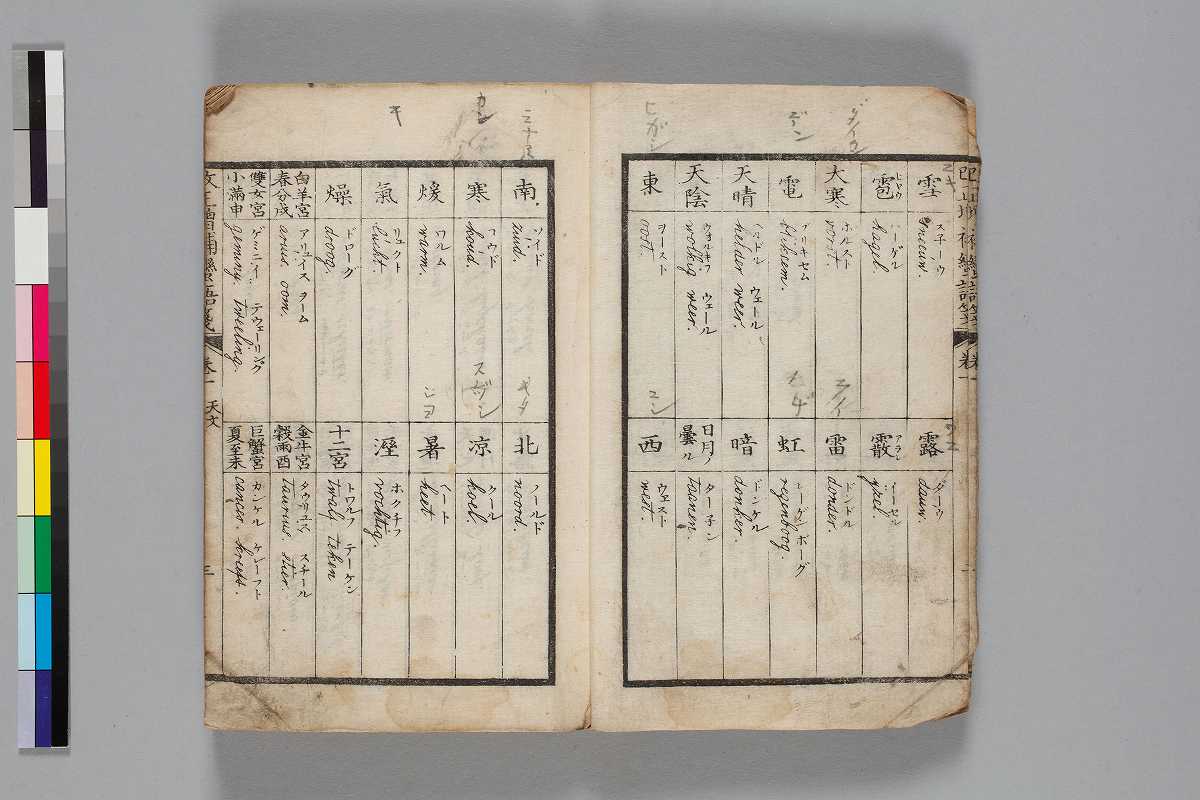 雪
スネーウ
sneeuw.
雹
ヒヤウ
ハーゲル
hagel.
大寒
ホルスト
vorst.
電
ブリキセム
bliksem.
天晴
ヘルドル ウェール
helder weer.
天陰
ウヲルキフ ウェール
wolkig weer.
東
ヲースト
oost.
露
ダーウ
dauw.
霰
アラレ
ヘーセル
雷
ドンドル
donder.
虹
レーゲンボーグ
regenboog.
暗
ドンケル
donker.
日月ノ
曇ル
ターネン
taanen.
西
ウェスト
west.
ヒガシ
デン
ニシ
ライ
南
ソイド
zuid.
寒
コウド
koud.
煖
ワルム
warm.
氣
リュクト
lucht.
燥
ドローグ
droog.
白羊宮
春分戌
アリュイス ラーム
aries. ram.
雙女宮
小滿申
ゲミニイ テウェーリング
geminy. tweeling.
北
ノールド
noord.
凉
クール
koel.
暑
ヘート
heet
溼
ホクチフ
vochtig.
十二宮
トワルフ テーケン
twalf teken
金牛宮
穀雨酉
タウリュス スチール
taurius. stier.
巨蟹宮
夏至未
カンケル ケレーフト
cancer. kreeft.
キ
カン
キタ
スヾシ
改正増補蠻語箋
卷一
天文
三